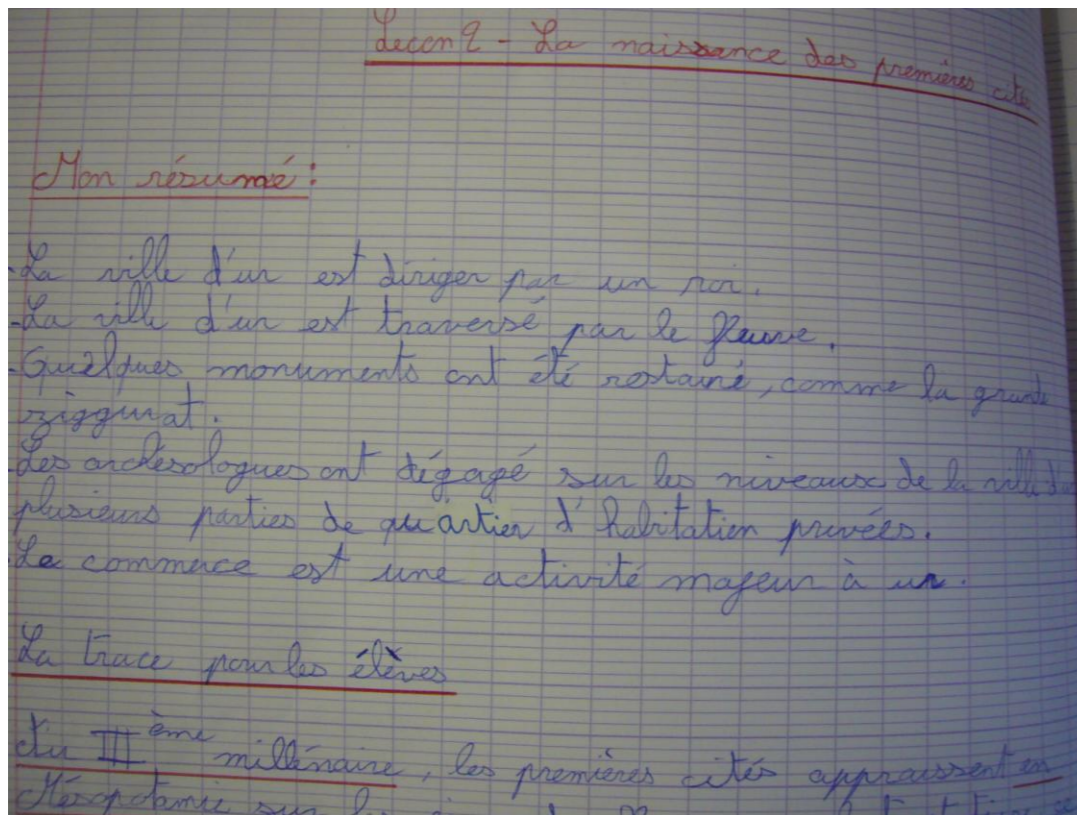 Leçon 2 - La naissance des premières cités
Mon résumé :
- La ville d'ur est diriger par un roi.
- La ville d'ur est traversé par le fleuve.
- Quelques monuments ont été rostauré, comme la grande
ziggurat.
- Les archésologues ont dégagé sur les niveaux de la ville
plusieurs parties de quartier d'habitation privées.
- Le commerce est une activité majeur à ur.
La trace pour les élèves
Au III ème millénaire, les premières cités appraissent en
Mésopotamie sur les